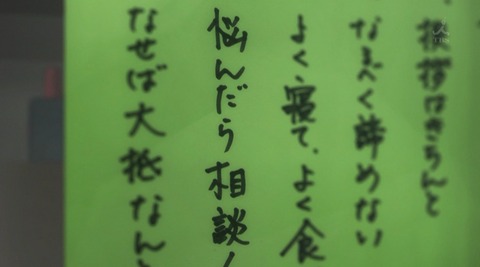 挨拶はきちんと
なるべく諦めない
よく寝て、よく食
悩んだら相談
なせば大抵なんと
TBS